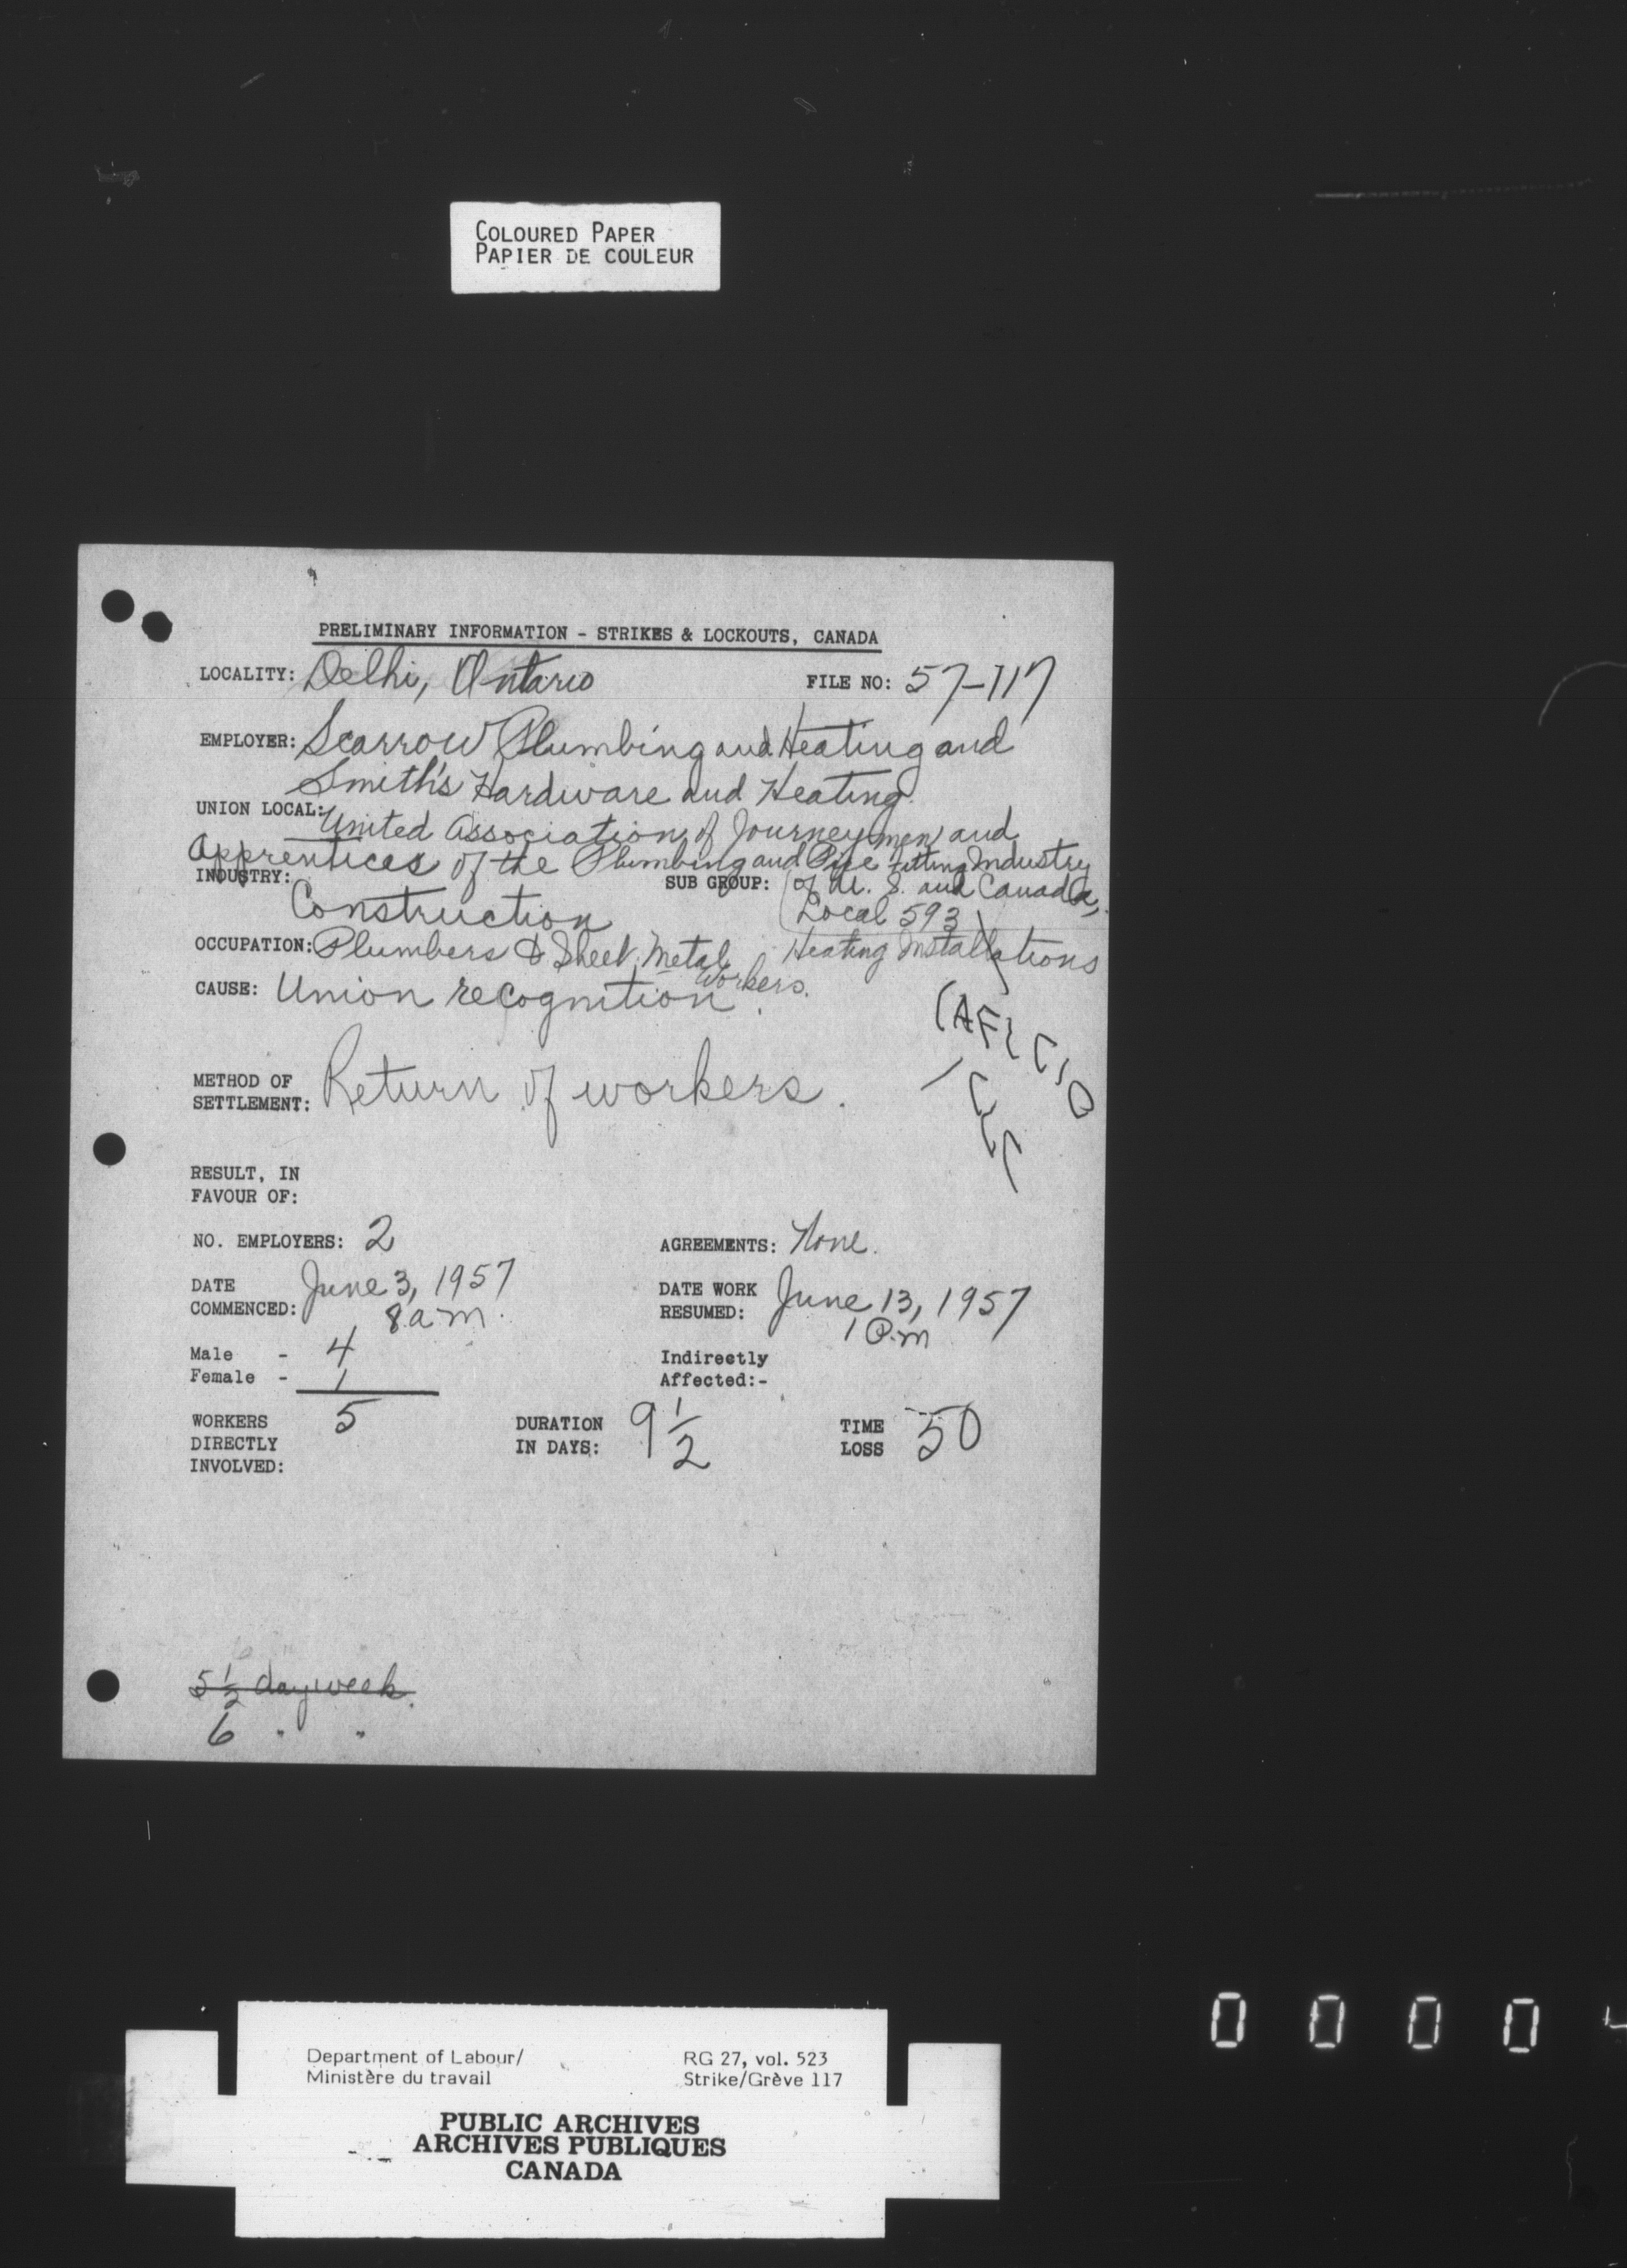 COLOURED PAPER
PAPIER DE COULEUR
PRELIMINARY INFORMATION - STRIKES & LOCKOUTS, CANADA
LOCALITY: Delhi, Ontario FILE NO: 57-117
EMPLOYER: Scarrow Plumbing and Heating and
Smith's Hardware and Heating.
UNION LOCAL: United Association of Journeymen and
Apprentices of the Plumbing and Pipe fitting Industry
INDUSTRY: SUB GROUP: of U. S. and Canada,
Construction Local 593
OCCUPATION: Plumbers & Sheet Metal Heating Installations
Workers.
CAUSE: Union recognition.
(AFL CIO
CLC)
METHOD OF
SETTLEMENT: Return of workers.
RESULT, IN
FAVOUR OF:
NO. EMPLOYERS: 2 AGREEMENTS: None.
DATE
COMMENCED: June 3, 1957 DATE WORK
RESUMED: June 13, 1957
8 a.m. 1 P.m
Male - 4 Indirectly
Female - 1 Affected:-
WORKERS
DIRECTLY
INVOLVED: 5 DURATION
IN DAYS: 9 1/2 TIME
LOSS 50
5 1/2 day week.
6 " "
Department of Labour/ RG 27, vol. 523
Ministère du travail Strike/Grève 117
PUBLIC ARCHIVES
ARCHIVES PUBLIQUES
CANADA
0 0 0 0